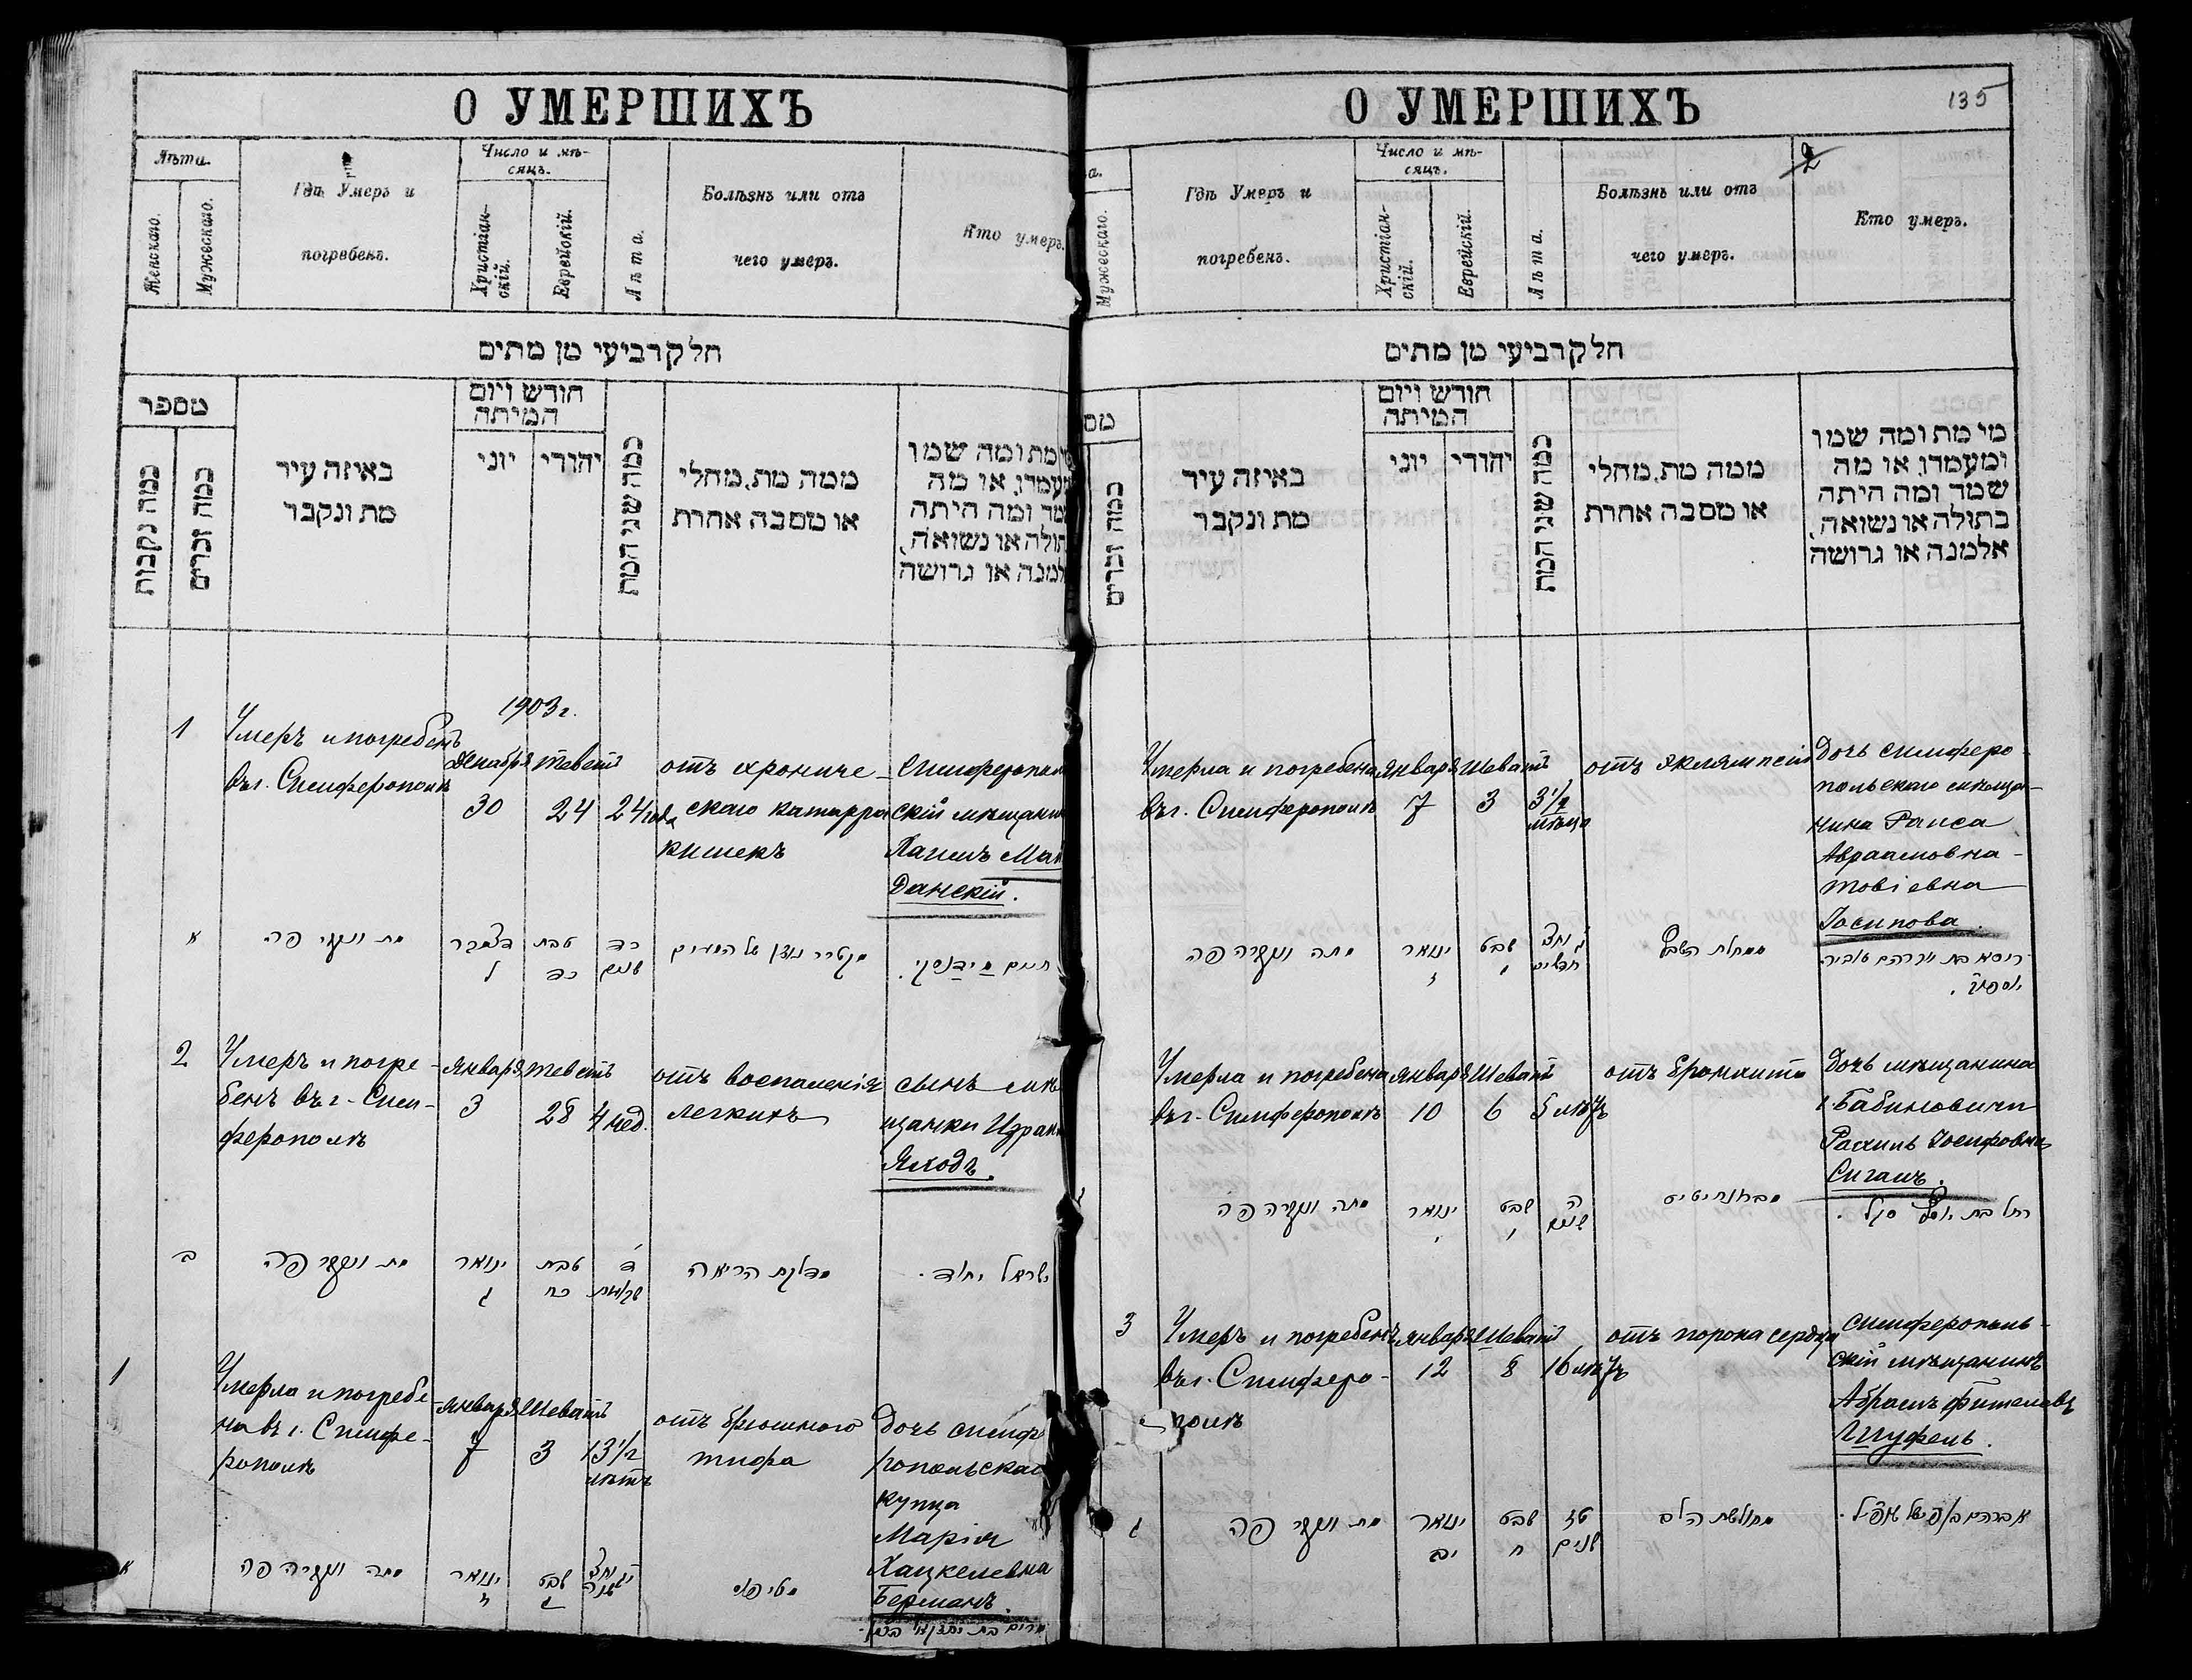 О УМЕРШИХЪ
Лѣта.
Женскаго.
Мужескаго.
Гдѣ Умеръ и
погребенъ.
Число и мѣ-
сяцъ.
Христіан-
скій.
Еврейскій.
Лѣта.
Болѣзнь или отъ
чего умеръ.
Кто умеръ.
חלק רביעי מן מתים
מספר
כמה נקבות
כמה זכרים
באיזה עיר
מת ונקבר
חודש ויום
המיתה
יוני
יהודי
כמה שני המת
ממה מת, מחלי
או מסבה אחרת
מת ומה שמו
או מה
ומה היתה
או נשואה,
או גרושה
1903 г.
1
Умеръ и погребенъ
въ г. Симферополѣ
Декабря
30
Теветъ
24
24 года
отъ хрониче-
скаго катарра
кишекъ
Симферополь
скій мѣщанин
Хаимъ Май
данскій.
א
מת ונקבר פה
דצמבר
ל
טבת
כד
כד
שנים
חיים מידנסקי.
2
Умеръ и погре-
бенъ въ г. Сим-
ферополѣ
Января
3
Теветъ
28
4 нед.
отъ воспаленія
легкихъ
сынъ мѣ
щанки Израиль
ב
מת ונקבר פה
ינואר
ג
טבת
כח
ד
שבועות
מדלקת הריאה
ישראל
1
Умерла и погребе-
на въ г. Симфе-
рополѣ
Января
7
Шеватъ
3
13 1/2
лѣтъ
отъ брюшного
тифа
Дочь симфе
ропольскаго
купца
Марія
Хацкелевна
Берманъ.
א
מתה ונקברה פה
ינואר
ז
שבט
ג
מרים בת
О УМЕРШИХЪ
135
2
а.
Мужескаго.
Гдѣ Умеръ и
погребенъ.
Число и мѣ-
сяцъ.
Христіан-
скій.
Еврейскій.
Лѣта.
Болѣзнь или отъ
чего умеръ.
Кто умеръ.
חלק רביעי מן מתים
מס
כמה זכרים
באיזה עיר
מת ונקבר
חודש ויום
המיתה
יוני
יהודי
כמה שני המת
ממה מת, מחלי
או מסבה אחרת
מי מת ומה שמו
ומעמדו, או מה
שמה ומה היתה
בתולה או נשואה,
אלמנה או גרושה
Умерла и погребена
въ г. Симферополѣ
Января
7
Шеватъ
3
3 1/2
мѣсяца
отъ эклямпсіи
Дочь симферо-
польскаго мѣща-
нина Раиса
Авраамовна-
Товіевна
Іосипова.
מתה ונקברה פה
ינואר
ז
שבט
חדשים
Умерла и погребена
въ г. Симферополѣ
Января
10
Шеватъ
6
5 лѣтъ
отъ бронхита
Дочь мѣщанина
г. Бабиновичи
Рахиль Іосифовна
Сигалъ.
מתה ונקברה פה
ינואר
י
שבט
ו
ה
שנים
רחל בת יוסף סגל.
3
Умеръ и погребенъ
въ г. Симферо-
полѣ
Января
12
Шеватъ
8
16 лѣтъ
отъ порока сердца
симферополь-
скій мѣщанинъ
Абрамъ Фишелевъ
ג
מת ונקבר פה
ינואר
יב
שבט
ח
טז
שנים
מחולשת הלב